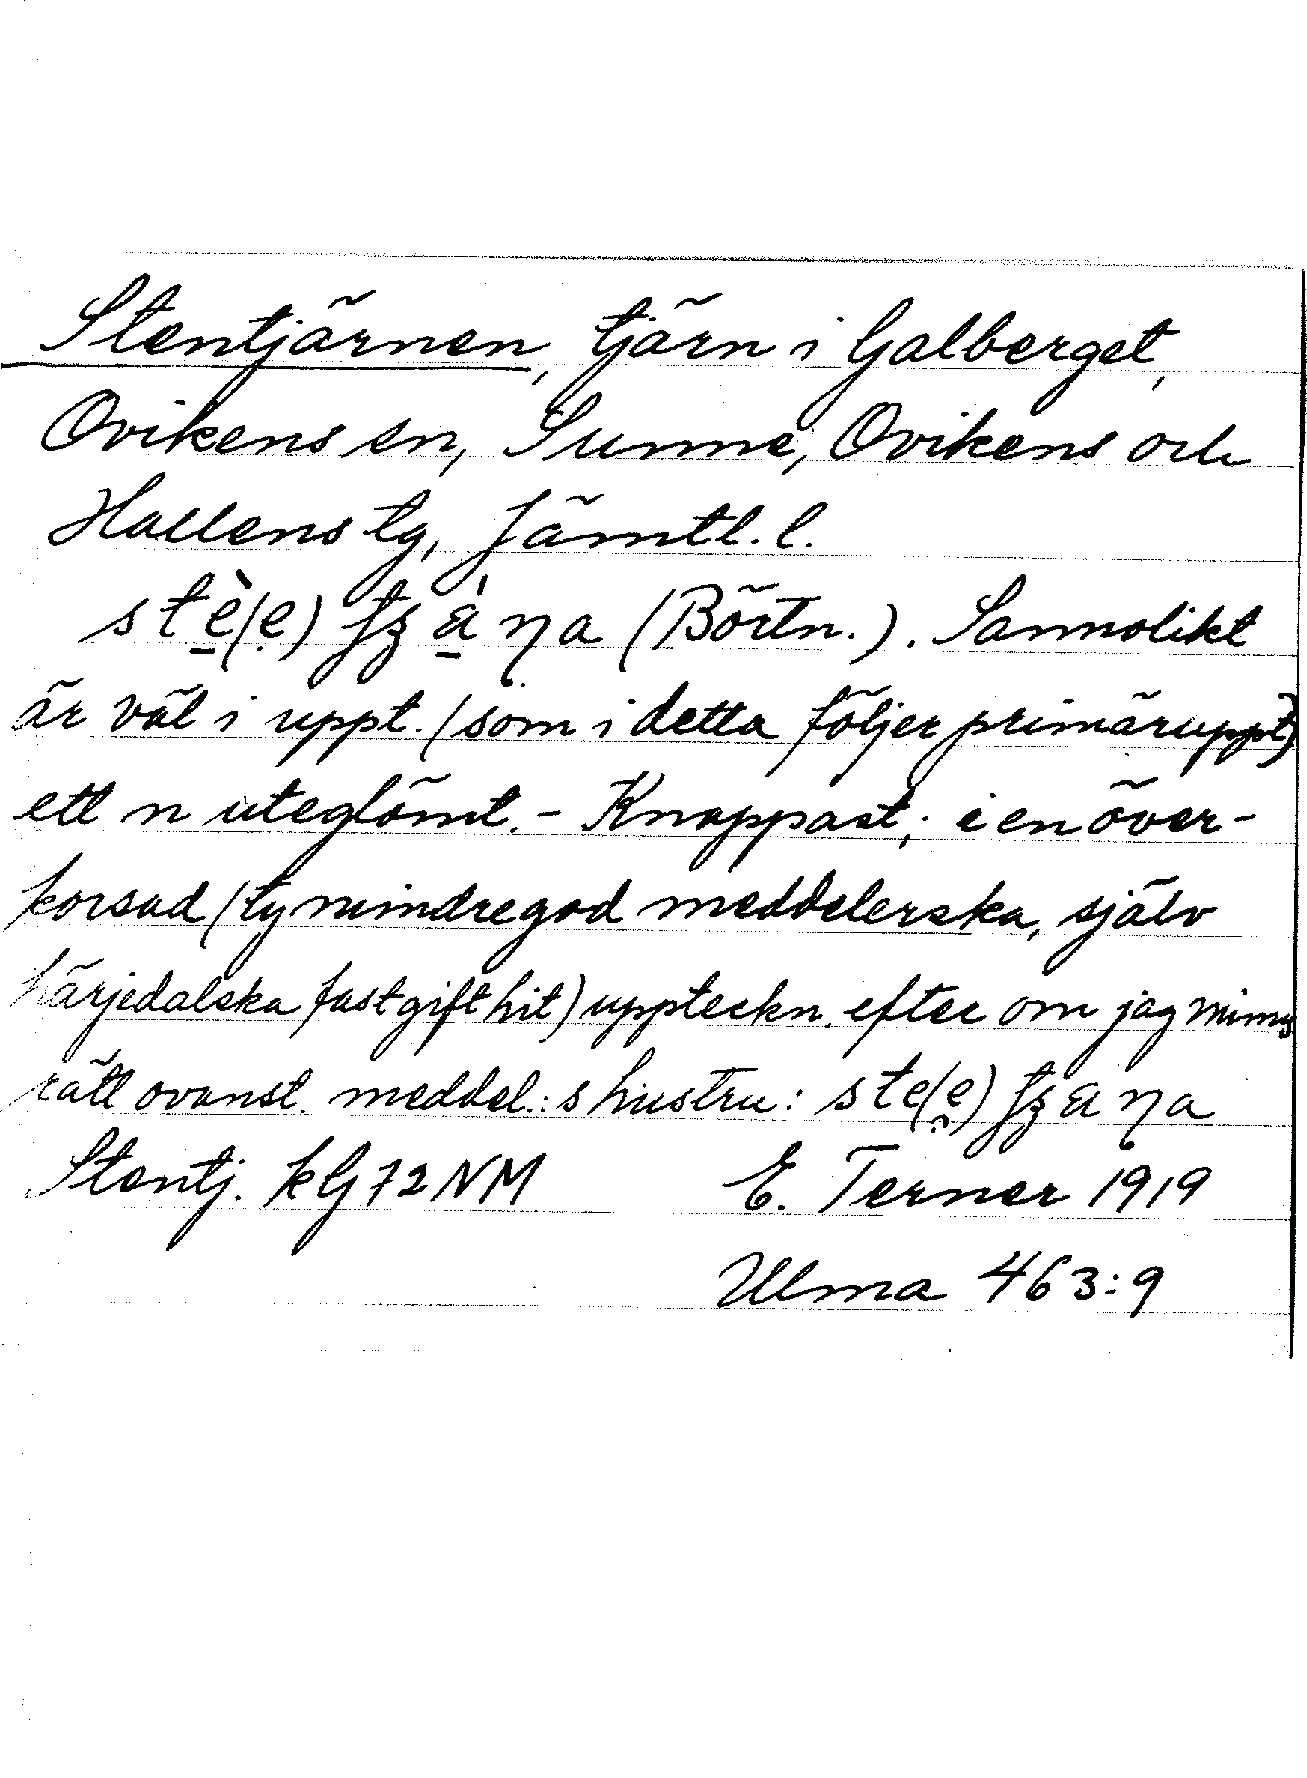 Stentjärnen, tjärn i Galberget,
Ovikens sn, Sunne, Ovikens och
Hallens tg, Jämtl. l.
(Börtn.). Sannolikt
är väl i uppt. (som i detta följer primäruppt)
ett n uteglömt. - Knappast; i en över-
korsad (ty mindre god meddelerska, själv
härjedalska fast gift hit) uppteckn. efter om jag minns
rätt ovanst. meddel.:s hustru:
Stentj. kG 72 NM E. Terner 1919
Ulma 463:9